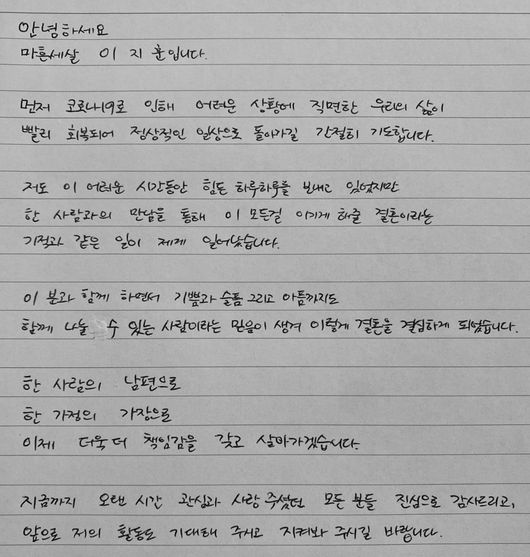 안녕하세요
마흔세살 이 지 훈입니다.
먼저 코로나19로 인해 어려운 상황에 직면한 우리의 삶이
빨리 회복되어 정상적인 일상으로 돌아가길 간절히 기도합니다.
저도 이 어려운 시간동안 힘든 하루하루를 보내고 있었지만
한 사람과의 만남을 통해 이 모든걸 이기게 해줄 결혼이라는
기적과 같은 일이 제게 일어났습니다.
이 분과 함께 하면서 기쁨과 슬픔 그리고 아픔까지도
함께 나눌 수 있는 사람이라는 믿음이 생겨 이렇게 결혼을 결심하게 되었습니다.
한 사람의 남편으로
한 가정의 가장으로
이제 더욱 더 책임감을 갖고 살아가겠습니다.
지금까지 오랜 시간 관심과 사랑 주셨던 모든 분들 진심으로 감사드리고,
앞으로 저의 활동도 기대해 주시고 지켜봐 주시길 바랍니다.